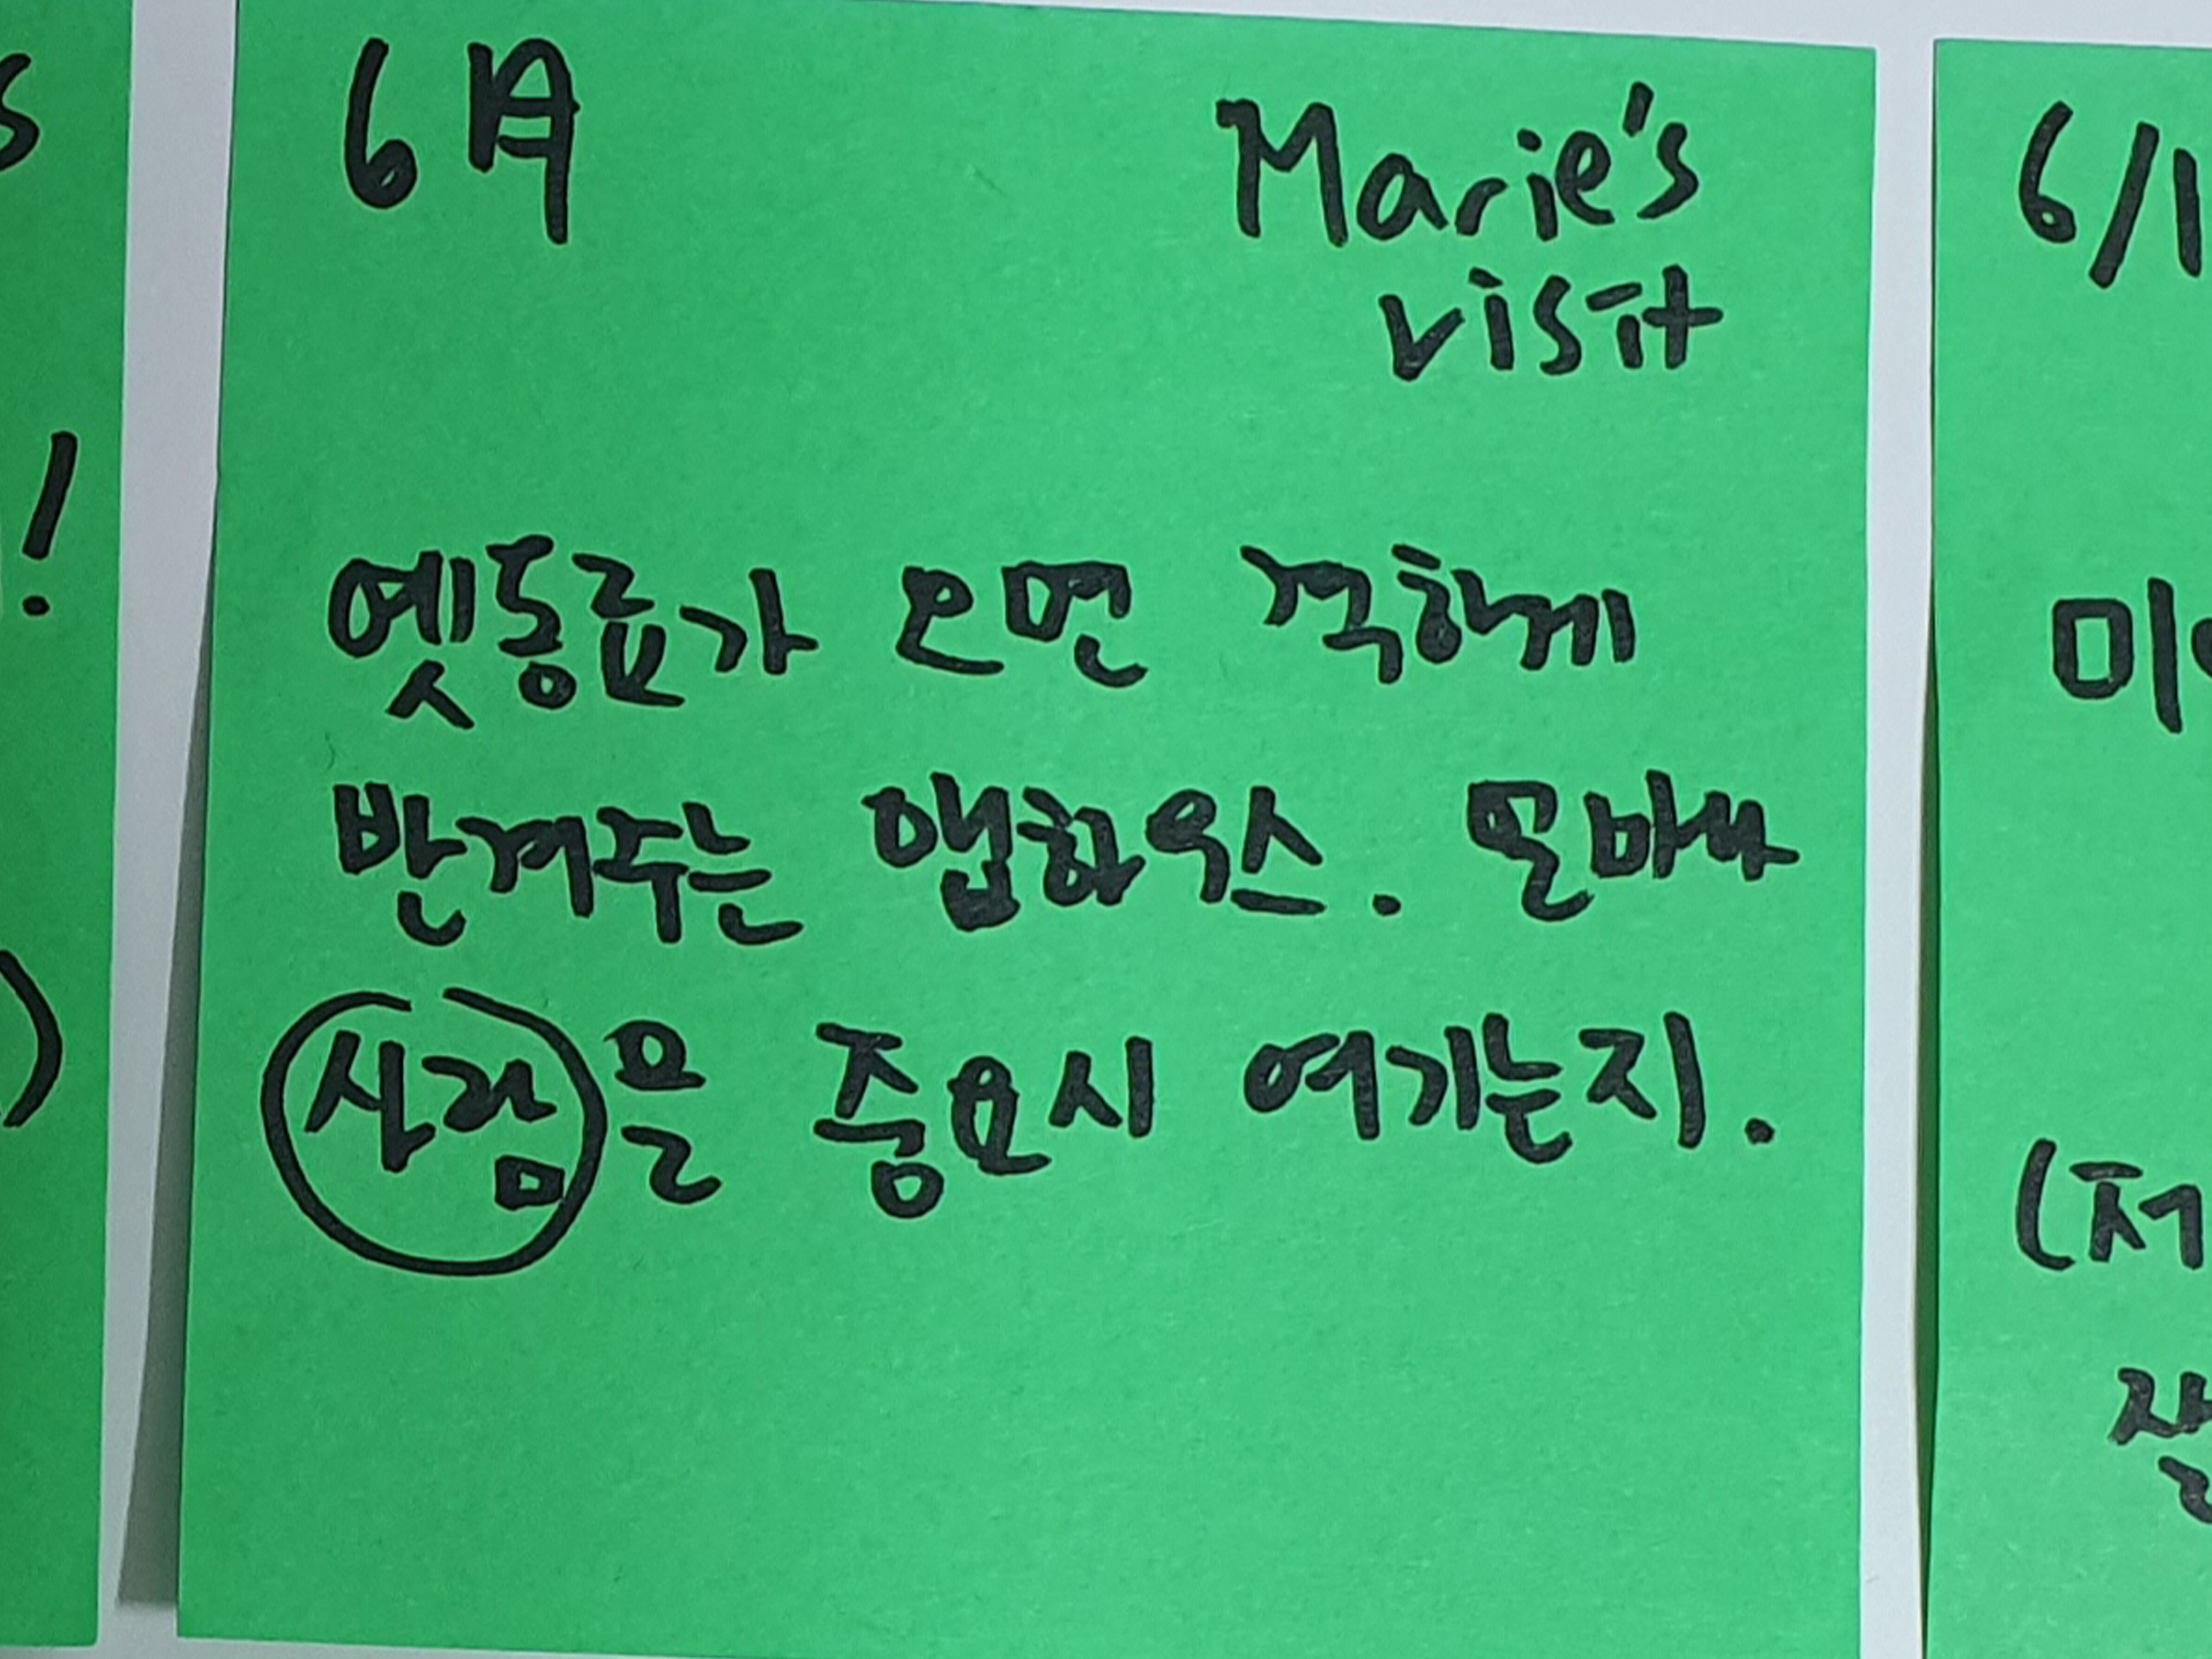 6月
Marie's
visit
옛동료가 오면 격하게
반겨주는 앱하우스. 얼마나
사람을 중요시 여기는지.
s
!
)
6/1
미
(저
잘